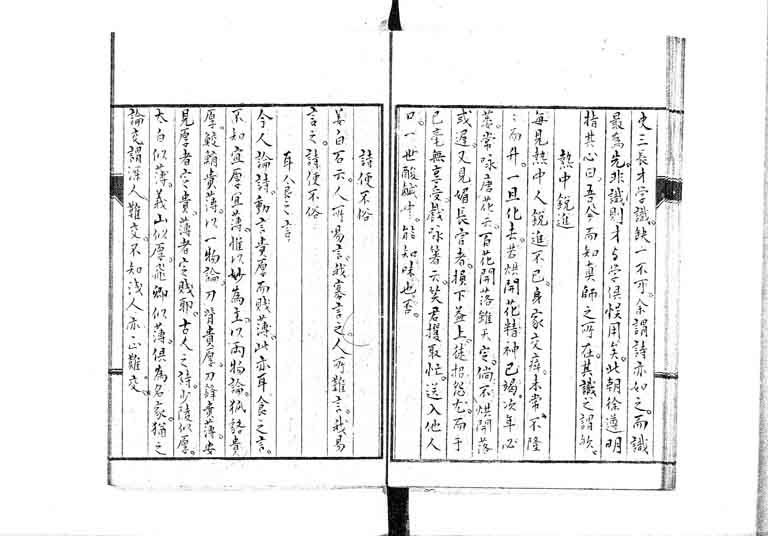 史三長才學識缺一不可余謂詩亦如之而識
最為先非識則才與學俱悞用矣此朝徐遵明
指其心曰吾今而知真師之所在其識之謂歟
熱中銳進
每見熱中人銳進不已身家交瘁未常不隆
隆而升一旦化去若烘開花精神已竭次年必
萎常咏唐花云百花開落雖天定倘不烘開落
或遲又見媚長官者損下益上徒招怨尤而于
己毫無享受戲咏箸云笑君攫取忙送入他人
口一世酸鹹中能知味也否
詩便不俗
姜白石云人所易言我寡言之人所難言我易
言之詩便不俗
耳食之言
今人論詩動言貴厚而賤薄此亦耳食之言
不知宜厚宜薄惟以妙為主以兩物論狐貉貴
厚鮫綃貴薄以一物論刀背貴厚刀鋒貴薄安
見厚者定貴薄者定賤耶古人之詩少陵似厚
太白似薄義山似厚飛卿似薄俱為名家猶之
論交謂深人難交不知淺人亦正難交